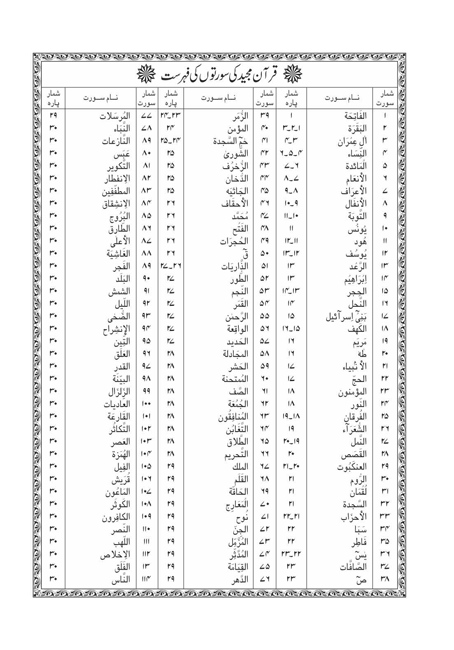 قرآن مجید کی سورتوں کی فہرست
شمار سورت نـام سـورت شمار پارہ شمار سورت نـام سـورت شمار پارہ شمار سورت نـام سـورت شمار پارہ
۱ الفَاتِحَة ۱ ۳۹ الزُّمَر ۲۳_۲۴ ۷۷ المُرسَلات ۲۹
۲ البَقَرَة ۱_۲_۳ ۴۰ المؤمِن ۲۴ ۷۸ النَّبَاء ۳۰
۳ آل عِمرَان ۳_۴ ۴۱ حٰمٓ السَّجدة ۲۴_۲۵ ۸۹ النَّازعَات ۳۰
۴ النِّسَاء ۴_۵_۶ ۴۲ الشُّورىٰ ۲۵ ۸۰ عَبَس ۳۰
۵ المَائدة ۶_۷ ۴۳ الزُّخرُف ۲۵ ۸۱ التَّكوِير ۳۰
۶ الأنعَام ۷_۸ ۴۴ الدُّخَان ۲۵ ۸۲ الإنفِطَار ۳۰
۷ الأعرَاف ۸_۹ ۴۵ الجَاثِيَه ۲۵ ۸۳ المطفِّفِين ۳۰
۸ الأنفَال ۹_۱۰ ۴۶ الأحقَاف ۲۶ ۸۴ الإنشِقاق ۳۰
۹ التَّوبَة ۱۰_۱۱ ۴۷ مُحَمَّد ۲۶ ۸۵ البُرُوج ۳۰
۱۰ يُونُس ۱۱ ۴۸ الفَتْح ۲۶ ۸۶ الطَّارق ۳۰
۱۱ هُود ۱۱_۱۲ ۴۹ الحُجرَات ۲۶ ۸۷ الأعلىٰ ۳۰
۱۲ يُوسُف ۱۲_۱۳ ۵۰ قٓ ۲۶ ۸۸ الغَاشِيَة ۳۰
۱۳ الرَّعَد ۱۳ ۵۱ الذَّاريَات ۲۶_۲۷ ۸۹ الفَجر ۳۰
۱۴ اِبرَاهِيم ۱۳ ۵۲ الطُّور ۲۷ ۹۰ البَلَد ۳۰
۱۵ الحِجر ۱۳_۱۴ ۵۳ النَجم ۲۷ ۹۱ الشمس ۳۰
۱۶ النَّحل ۱۴ ۵۴ القَمَر ۲۷ ۹۲ اللَّيل ۳۰
۱۷ بَنِيٓ اِسرآئيل ۱۵ ۵۵ الرَّحمٰن ۲۷ ۹۳ الضُّحىٰ ۳۰
۱۸ الكَهف ۱۵_۱۶ ۵۶ الواقِعة ۲۷ ۹۴ الإنشِرَاح ۳۰
۱۹ مَريَم ۱۶ ۵۷ الحَديد ۲۷ ۹۵ التِّين ۳۰
۲۰ طٰهٰ ۱۶ ۵۸ المجَادلة ۲۸ ۹۶ العَلَق ۳۰
۲۱ الأنبِياء ۱۷ ۵۹ الحَشر ۲۸ ۹۷ القَدر ۳۰
۲۲ الحجّ ۱۷ ۶۰ المُمتَحنَة ۲۸ ۹۸ البيّنَة ۳۰
۲۳ المؤمنون ۱۸ ۶۱ الصَّف ۲۸ ۹۹ الزِّلزَال ۳۰
۲۴ النُّور ۱۸ ۶۲ الجُمُعَة ۲۸ ۱۰۰ العادِيات ۳۰
۲۵ الفُرقَان ۱۸_۱۹ ۶۳ المُنَافِقُون ۲۸ ۱۰۱ القَارعَة ۳۰
۲۶ الشُّعَرَآء ۱۹ ۶۴ التَّغَابُن ۲۸ ۱۰۲ التَّكاثُر ۳۰
۲۷ النَّمل ۱۹_۲۰ ۶۵ الطَّلاق ۲۸ ۱۰۳ العَصر ۳۰
۲۸ القَصَص ۲۰ ۶۶ التَّحريم ۲۸ ۱۰۴ الهُمَزة ۳۰
۲۹ العنكَبُوت ۲۰_۲۱ ۶۷ المُلك ۲۹ ۱۰۵ الفِيل ۳۰
۳۰ الرُّوم ۲۱ ۶۸ القَلَم ۲۹ ۱۰۶ قُرَيش ۳۰
۳۱ لُقمَان ۲۱ ۶۹ الحَاقَّة ۲۹ ۱۰۷ المَاعُون ۳۰
۳۲ السَّجدة ۲۱ ۷۰ المَعَارِج ۲۹ ۱۰۸ الكَوثَر ۳۰
۳۳ الأحزَاب ۲۱_۲۲ ۷۱ نُوح ۲۹ ۱۰۹ الكَافِرون ۳۰
۳۴ سَبَا ۲۲ ۷۲ الجِن ۲۹ ۱۱۰ النَّصر ۳۰
۳۵ فَاطِر ۲۲ ۷۳ المُزَّمِّل ۲۹ ۱۱۱ اللَّهب ۳۰
۳۶ يٰسٓ ۲۲_۲۳ ۷۴ المُدَّثِّر ۲۹ ۱۱۲ الإخلاص ۳۰
۳۷ الصَّافَّات ۲۳ ۷۵ القِيَامَة ۲۹ ۱۱۳ الفَلَق ۳۰
۳۸ صٓ ۲۳ ۷۶ الدَّهر ۲۹ ۱۱۴ النَّاس ۳۰